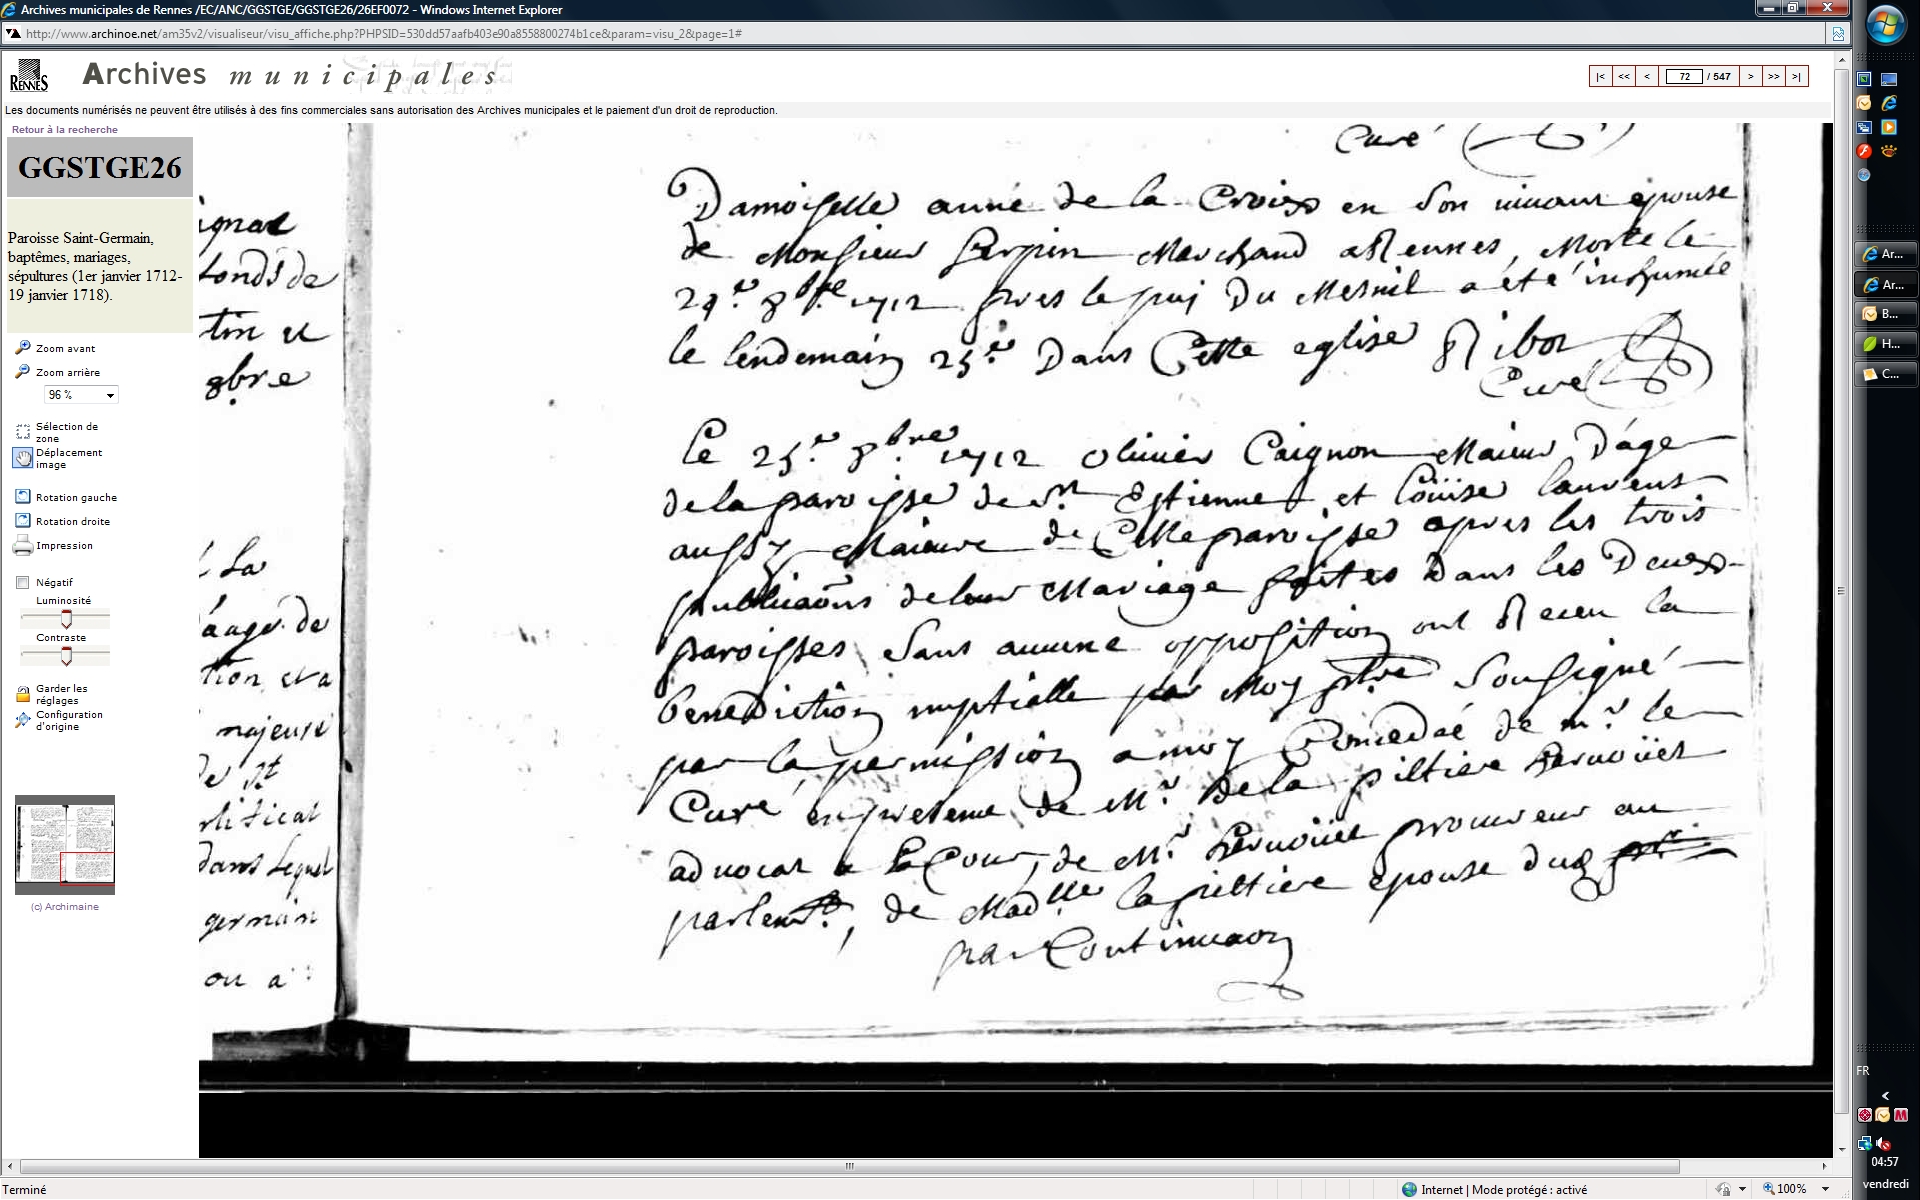 Archives municipales de Rennes /EC/ANC/GGSTGE/GGSTGE26/26EF0072 - Windows Internet Explorer
http://www.archinoe.net/am35v2/visualiseur/visu_affiche.php?PHPSID=530dd57aafb403e90a8558800274b1ce&param=visu_2&page=1#
RENNES Archives municipales
|< << < 72 / 547 > >> >|
Les documents numérisés ne peuvent être utilisés à des fins commerciales sans autorisation des Archives municipales et le paiement d'un droit de reproduction.
Retour à la recherche
GGSTGE26
Paroisse Saint-Germain,
baptêmes, mariages,
sépultures (1er janvier 1712-
19 janvier 1718).
Zoom avant
Zoom arrière
96 %
Sélection de
zone
Déplacement
image
Rotation gauche
Rotation droite
Impression
Négatif
Luminosité
Contraste
Garder les
réglages
Configuration
d'origine
(c) Archimaine
fonds de
tin et
gbre
la
de
tion et a
majeure
de St
dans lequel
germain
ou a
Curé
Damoiselle anne de la Croix en son vivant epouse
de Monsieur Perpin Marchand a Rennes, Morte le
24e 8bre 1712 pres le puy Du Mesnil a été inhumée
le lendemain 25e Dans Cette eglise Ribot
Curé
Le 25e 8bre 1712 olivier Caignon Maieur D'age
de la paroisse de St Estienne et Loüise laurens
aussy Maieure de Cette paroisse apres les trois
publicaons de leur Mariage faites Dans les Deux
paroisses sans aucune opposition ont Receu la
benediction nuptialle par Moy ptre Soussigné
par la permission a moy Concedée de mr le
Curé en presence de Mr De la piltiere Bernoüet
advocat a La Cour, de Mr Bernoüet procureur au
parlemt, de Madlle la piltiere epouse dud
par Continuaon
Ar...
Ar...
B...
H...
C...
FR
<
04:57
vendredi
Terminé
Internet | Mode protégé : activé
100%